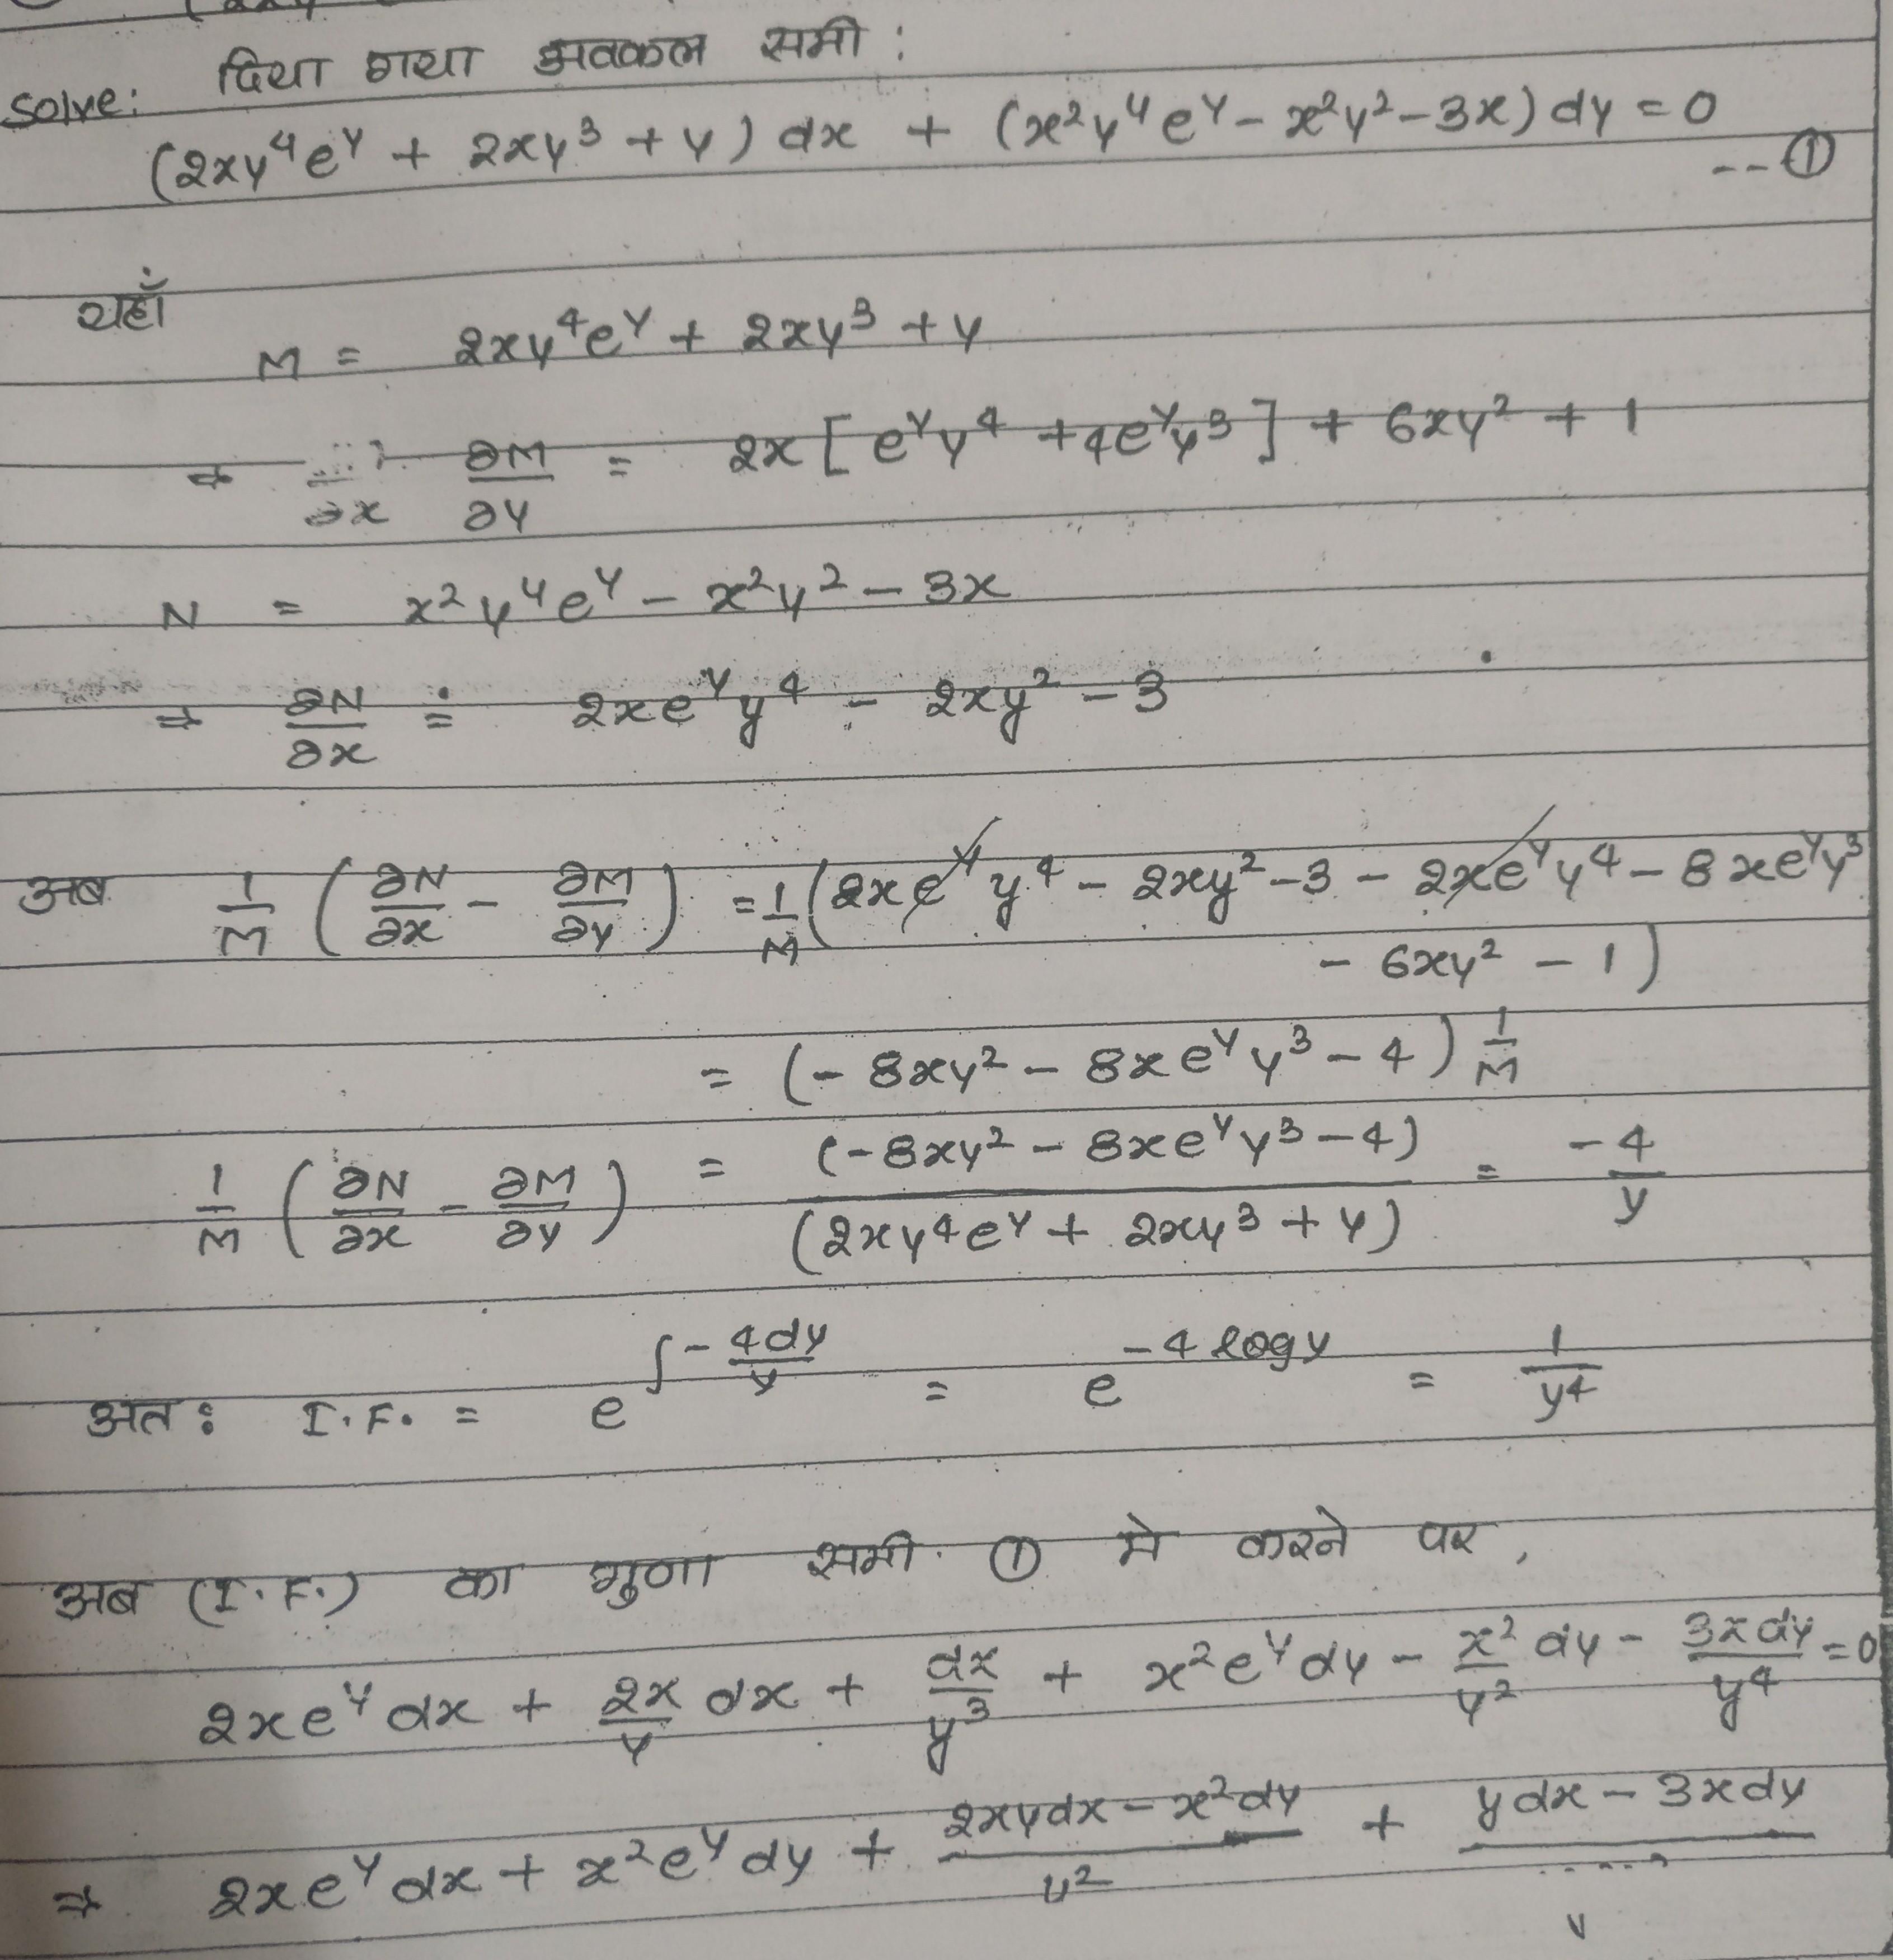 solve: दिया गया अवकल समी :
(2xy⁴eʸ + 2xy³ + y) dx + (x²y⁴eʸ - x²y² - 3x) dy = 0
-- ①
यहाँ
M = 2xy⁴eʸ + 2xy³ + y
⇒ ∂M/∂y = 2x [eʸy⁴ + 4eʸy³] + 6xy² + 1
N = x²y⁴eʸ - x²y² - 3x
⇒ ∂N/∂x = 2xeʸy⁴ - 2xy² - 3
अब 1/M (∂N/∂x - ∂M/∂y) = 1/M (2xeʸy⁴ - 2xy² - 3 - 2xeʸy⁴ - 8xeʸy³
- 6xy² - 1)
= (-8xy² - 8xeʸy³ - 4) 1/M
1/M (∂N/∂x - ∂M/∂y) = (-8xy² - 8xeʸy³ - 4)/(2xy⁴eʸ + 2xy³ + y) = -4/y
अत: I.F. = e^(∫-4dy/y) = e^(-4 logy) = 1/y⁴
अब (I.F.) का गुणा समी. ① मे करने पर,
2xeʸdx + 2x/y dx + dx/y³ + x²eʸdy - x²/y² dy - 3xdy/y⁴ = 0
⇒ 2xeʸdx + x²eʸdy + (2xydx - x²dy)/y² + ydx - 3xdy